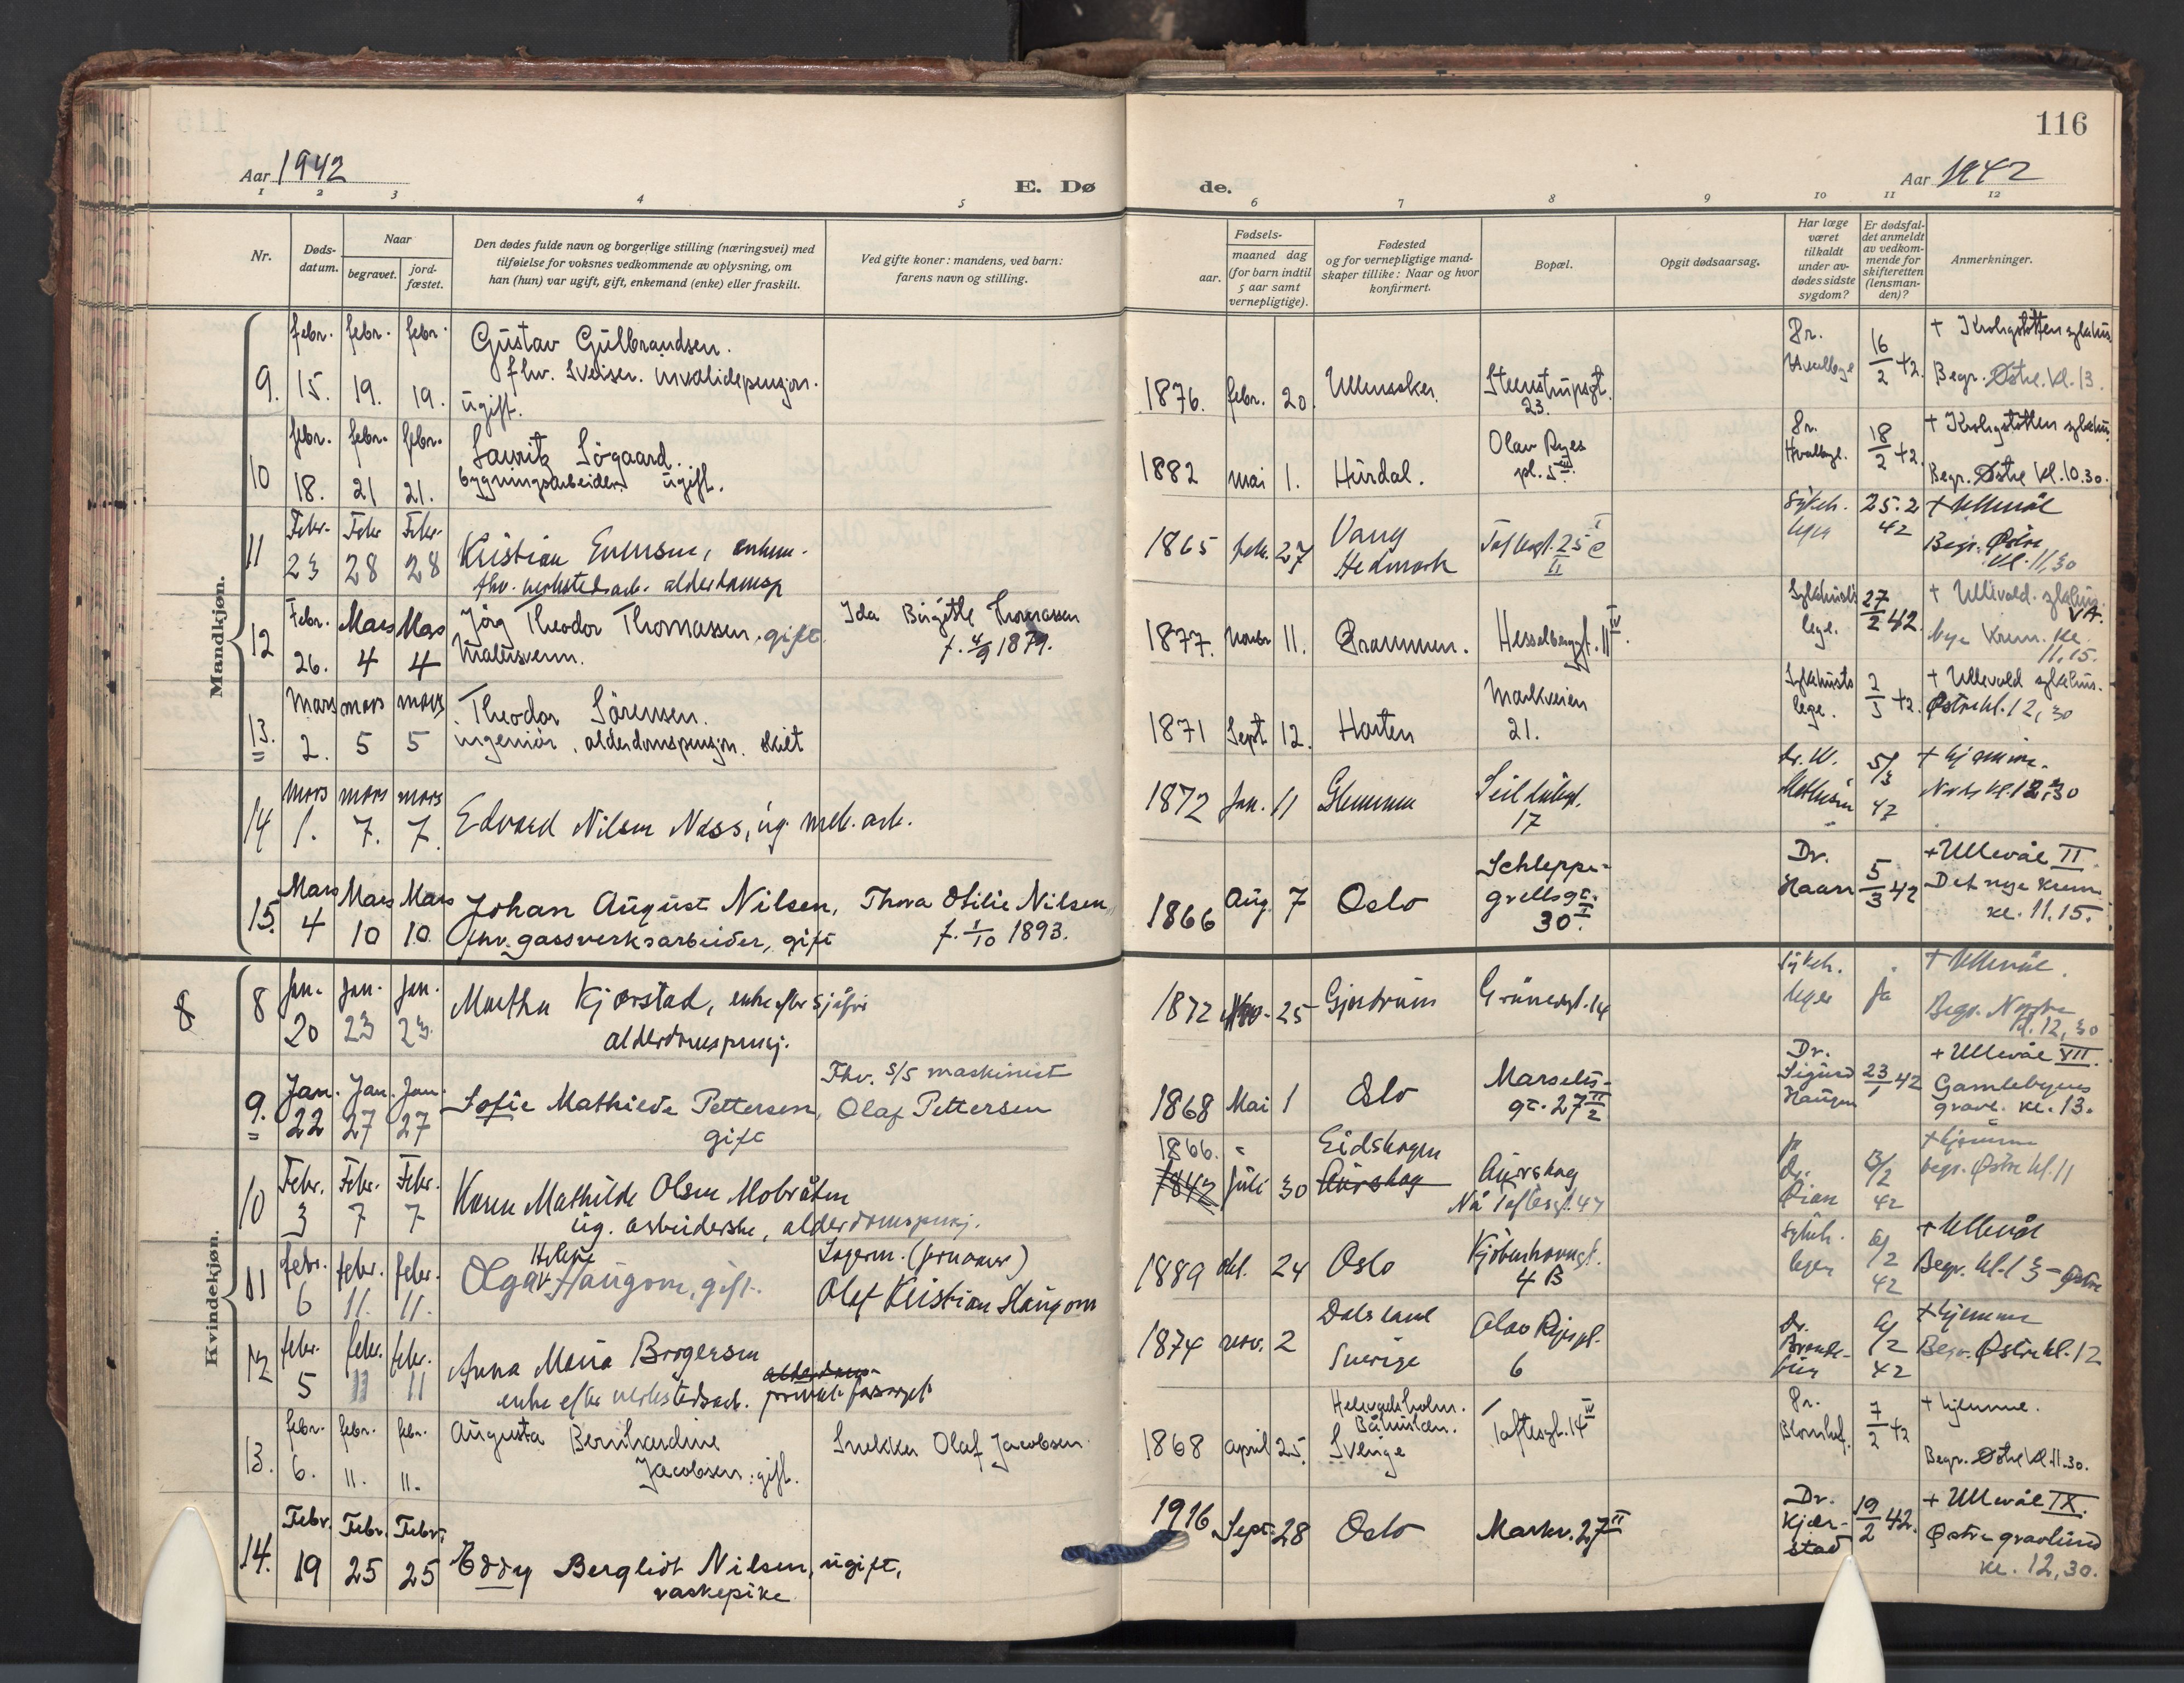 116
Aar 1942
E. Dø
de.
Aar 1942
1 2 3 4 5 6 7 8 9 10 11 12
Nr.
Døds-
datum.
Naar
begravet.
jord-
fæstet.
Den dødes fulde navn og borgerlige stilling (næringsvei) med
tilføielse for voksnes vedkommende av oplysning, om
han (hun) var ugift, gift, enkemand (enke) eller fraskilt.
Ved gifte koner: mandens, ved barn:
farens navn og stilling.
Fødsels-
aar.
maaned dag
(for barn indtil
5 aar samt
vernepligtige).
Fødested
og for vernepligtige mand-
skaper tillike: Naar og hvor
konfirmert.
Bopæl.
Opgit dødsaarsag.
Har læge
været
tilkaldt
under av-
dødes sidste
sygdom?
Er dødsfal-
det anmeldt
av vedkom-
mende for
skifteretten
(lensman-
den)?
Anmerkninger.
Mandkjøn.
9. febr. 15. febr. 19. febr. 19.
Gustav Gulbrandsen.
fhv. sveiser. invalidepensjon.
ugift.
1876. febr. 20. Ullensaker. Steenstrupsgt.
23.
Dr.
16/2 42.
+ Krohgstøtten sykehus
Begr. Østre. kl. 13.
10 febr. 18. febr. 21 febr. 21.
Lauritz Søgaard.
bygningsarbeider. ugift.
1882 mai 1. Hurdal. Olav Ryes
pl. 5
Dr.
18/2 42.
+ Krohgstøtten sykehus
Begr. Østre kl. 10.30.
11 Febr. 23 Febr 28 Febr. 28
Kristian Evensen, enkem.
fhv. verkstedsarb. alderdomsp
1865 febr. 27 Vang
Hedmark
Toftesgt. 25 c
II
Sykeh.
leger
25.2
42
+ Ullevål
Begr. Østre
kl. 11,30
12 Febr. 26. Mars 4 Mars 4
Jörg Theodor Thomassen. gift.
malersvenn.
Ida Birgitte Thomassen
f. 4/9 1879.
1877. novbr 11. Drammen. Hesselbergsgt. 11 IV.
Sykehusets
lege.
27/2 42.
+ Ullevold. sykehus.
Nye Krem. kl.
11.15.
13. Mars 2. mars 5 mars 5
Theodor Sørensen.
ingeniør, alderdomspensjon. skilt
1871 Sept 12. Horten Markveien
21.
Sykehusets
lege.
2/3 42.
+ Ullevold sykehus.
Østre kl. 12,30
14 mars 1. mars 7. mars 7.
Edvard Nilsen Næss, ug. mek. arb.
1872 Jan. 11 Glemmen Seilduksgt.
17
Dr. W.
Mathisen
5/3
42
+ hjemme.
Nordre kl. 12,30
15. Mars 4 Mars 10 Mars 10
Johan August Nilsen,
fhv. gassverksarbeider, gift
Thora Otilie Nilsen,
f. 1/10 1893.
1866 Aug. 7 Oslo Schleppe-
grellsgt.
30 I.
Dr.
Haarr
5/3 42
+ Ullevål II.
Det nye krem.
kl. 11.15.
Kvindekjøn.
8
8 Jan. 20 Jan. 23 Jan. 23.
Martha Kjærstad, enke efter sjåfør
alderdomspensj.
1872 25 Gjerdrum Grünersgt. 14
Sykeh.
leger
ja
+ Ullevål.
Begr. Nordre
kl. 12,30
9. Jan. 22 Jan. 27 Jan. 27
Sofie Mathilde Pettersen,
gift
Fhv. s/s maskinist
Olaf Pettersen
1868 Mai 1 Oslo Marselis-
gt. 27 II/2
Dr.
Sigurd
Haugen
23/1 42
+ Ullevål VII.
Gamlebyens
gravl. kl. 13.
10 Febr. 3 Febr. 7 Febr. 7
Karen Mathilde Olsen Mobråten
ug. arbeiderske, alderdomspensj.
1866.
1843 juli 30
Eidskogen
Aurskog
Aurskog
Nå Toftesgt. 47
ja
Dr.
42
+ hjemme
begr. Østre kl. 11
11 febr. 6 febr. 11. febr. 11.
Helene
Olga Haugom, gift.
Lagerm.
Olaf Kristian Haugom
1889 okt. 24 Oslo Kjøbenhavnsgt.
4 B
Sykeh.
leger
42
+ Ullevål
Begr. kl. 13 - Østre
12 febr. 5 febr. 11 febr. 11
Anna Maria Brogersen
alderdoms-
enke efter verkstedsarb. privat forsørget
1874 nov. 2 Dalsland
Sverige
Olav Ryes pl.
6
Dr.
42
+ hjemme
Begr. Østre kl. 12
13. febr. 6. febr. 11. febr. 11.
Augusta Bernhardine
Jacobsen. gift.
Snekker Olaf Jacobsen
1868 april 25.
Båhuslen.
Sverige
Toftesgt. 14 IV
Dr.
7/2 42
+ hjemme.
Begr. Østre kl. 11.30.
14. Febr. 19 Febr. 25 Febr. 25
Eddy Bergliot Nilsen, ugift,
vaskepike
1916 Sept. 28 Oslo Markv. 27 II
Dr.
Kjær-
stad
19/2 42.
+ Ullevål IX.
Østre gravlund
kl. 12,30.